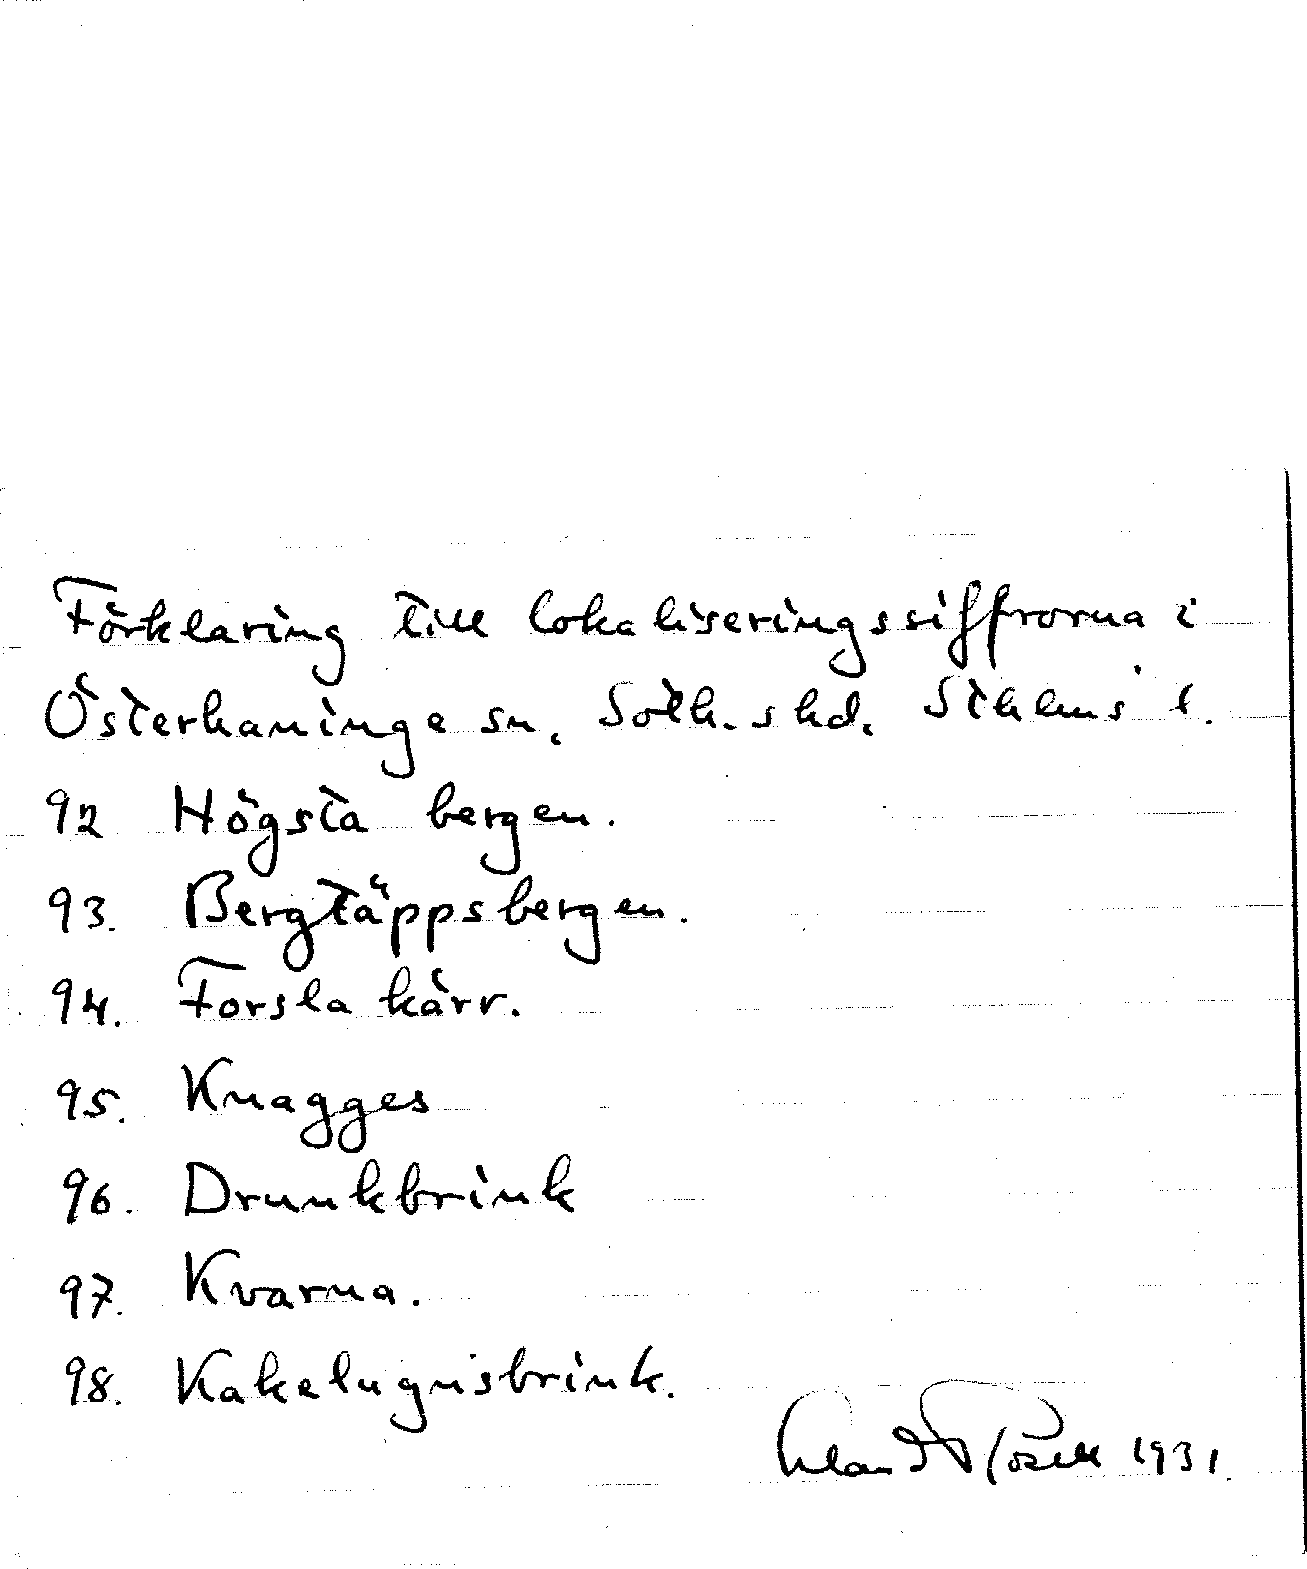 Förklaring till lokaliseringssiffrorna i
Österhaninge sn. Soth. shd. Sthlms l.
92 Högsta bergen.
93. Bergtäppsbergen.
94. Forsla kärr.
95. Knagges
96. Drunkbrink
97. Kvarna.
98. Kakelugnsbrink.
1931.